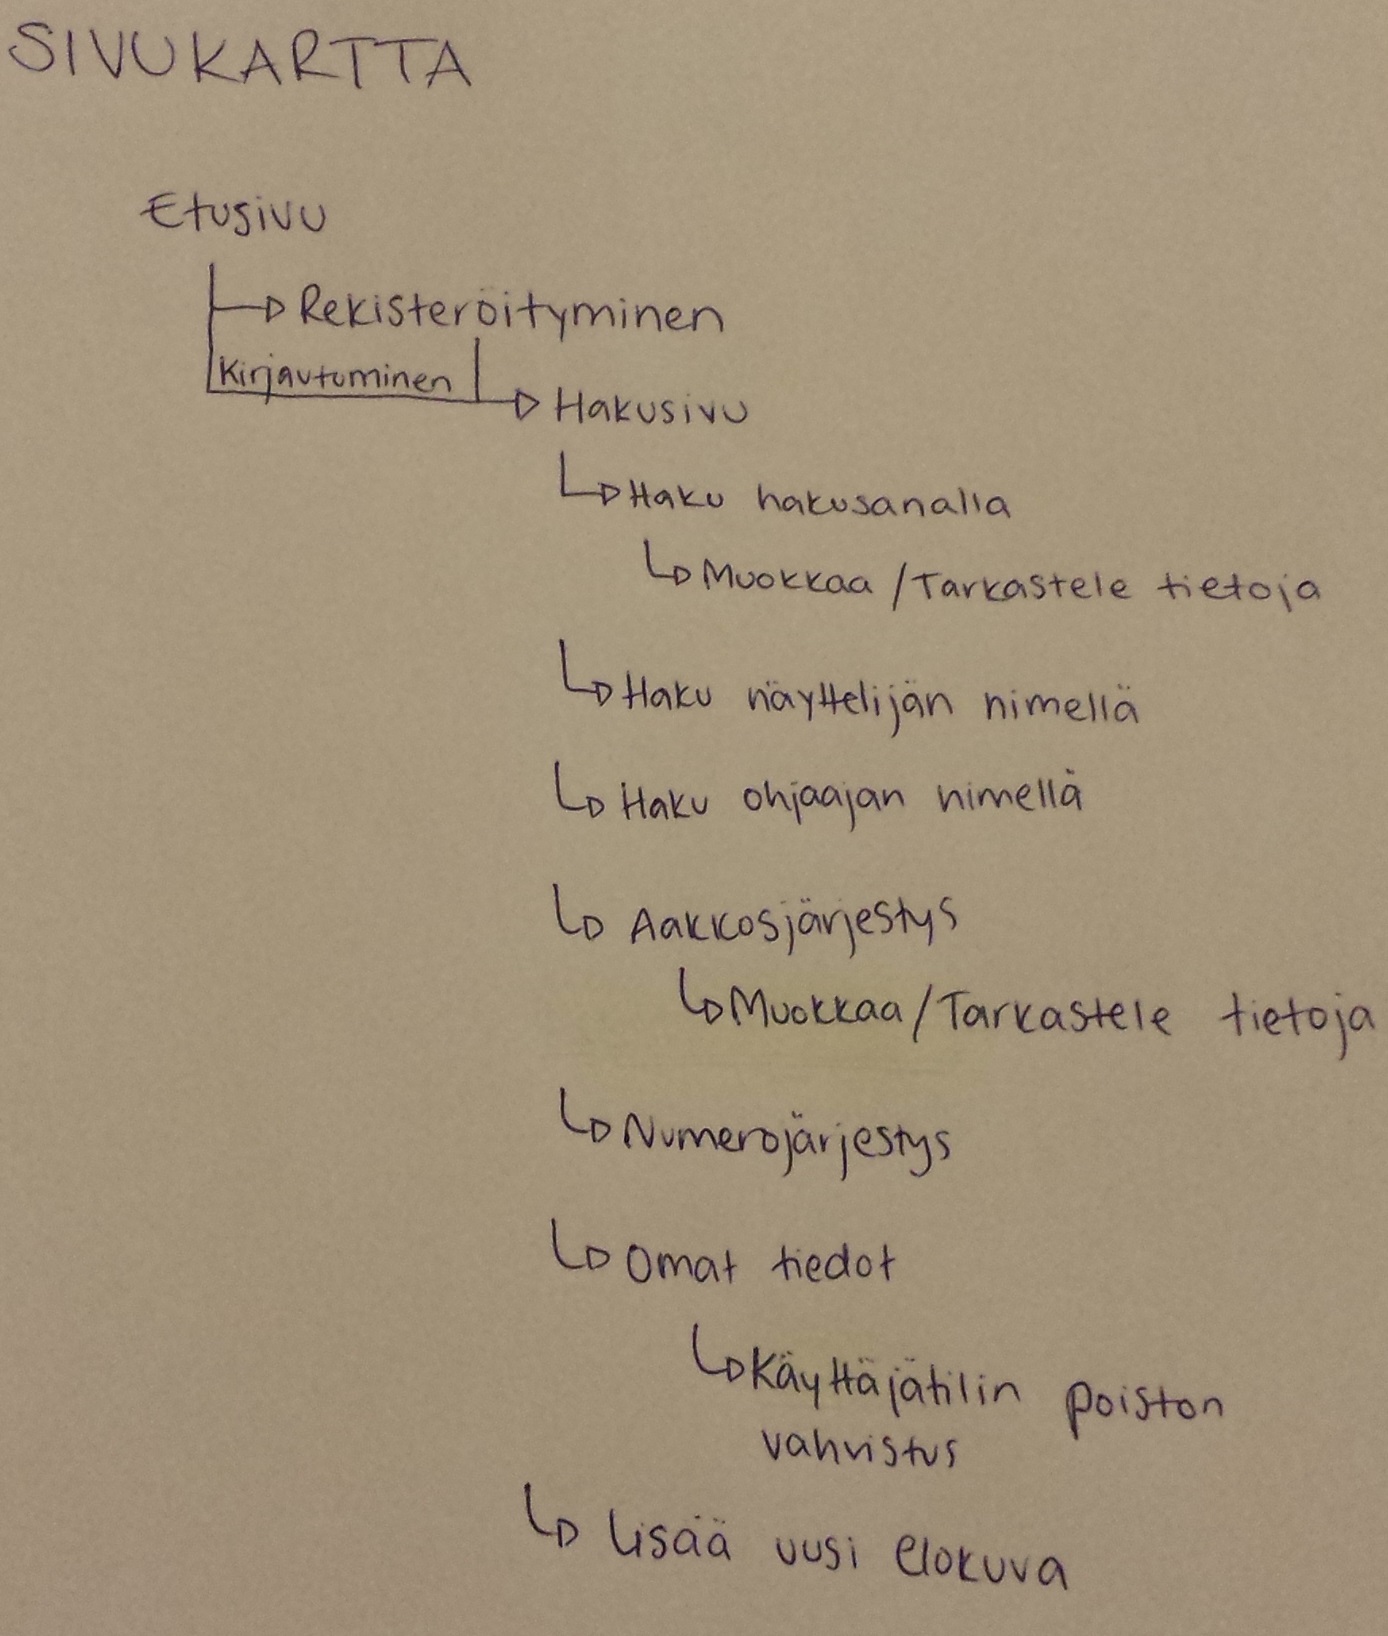 SIVUKARTTA
Etusivu
Rekisteröityminen
Kirjautuminen
Hakusivu
Haku hakusanalla
Muokkaa/Tarkastele tietoja
Haku näyttelijän nimellä
Haku ohjaajan nimellä
Aakkosjärjestys
Muokkaa/Tarkastele tietoja
Numerojärjestys
Omat tiedot
Käyttäjätilin poiston
vahvistus
lisää uusi elokuva